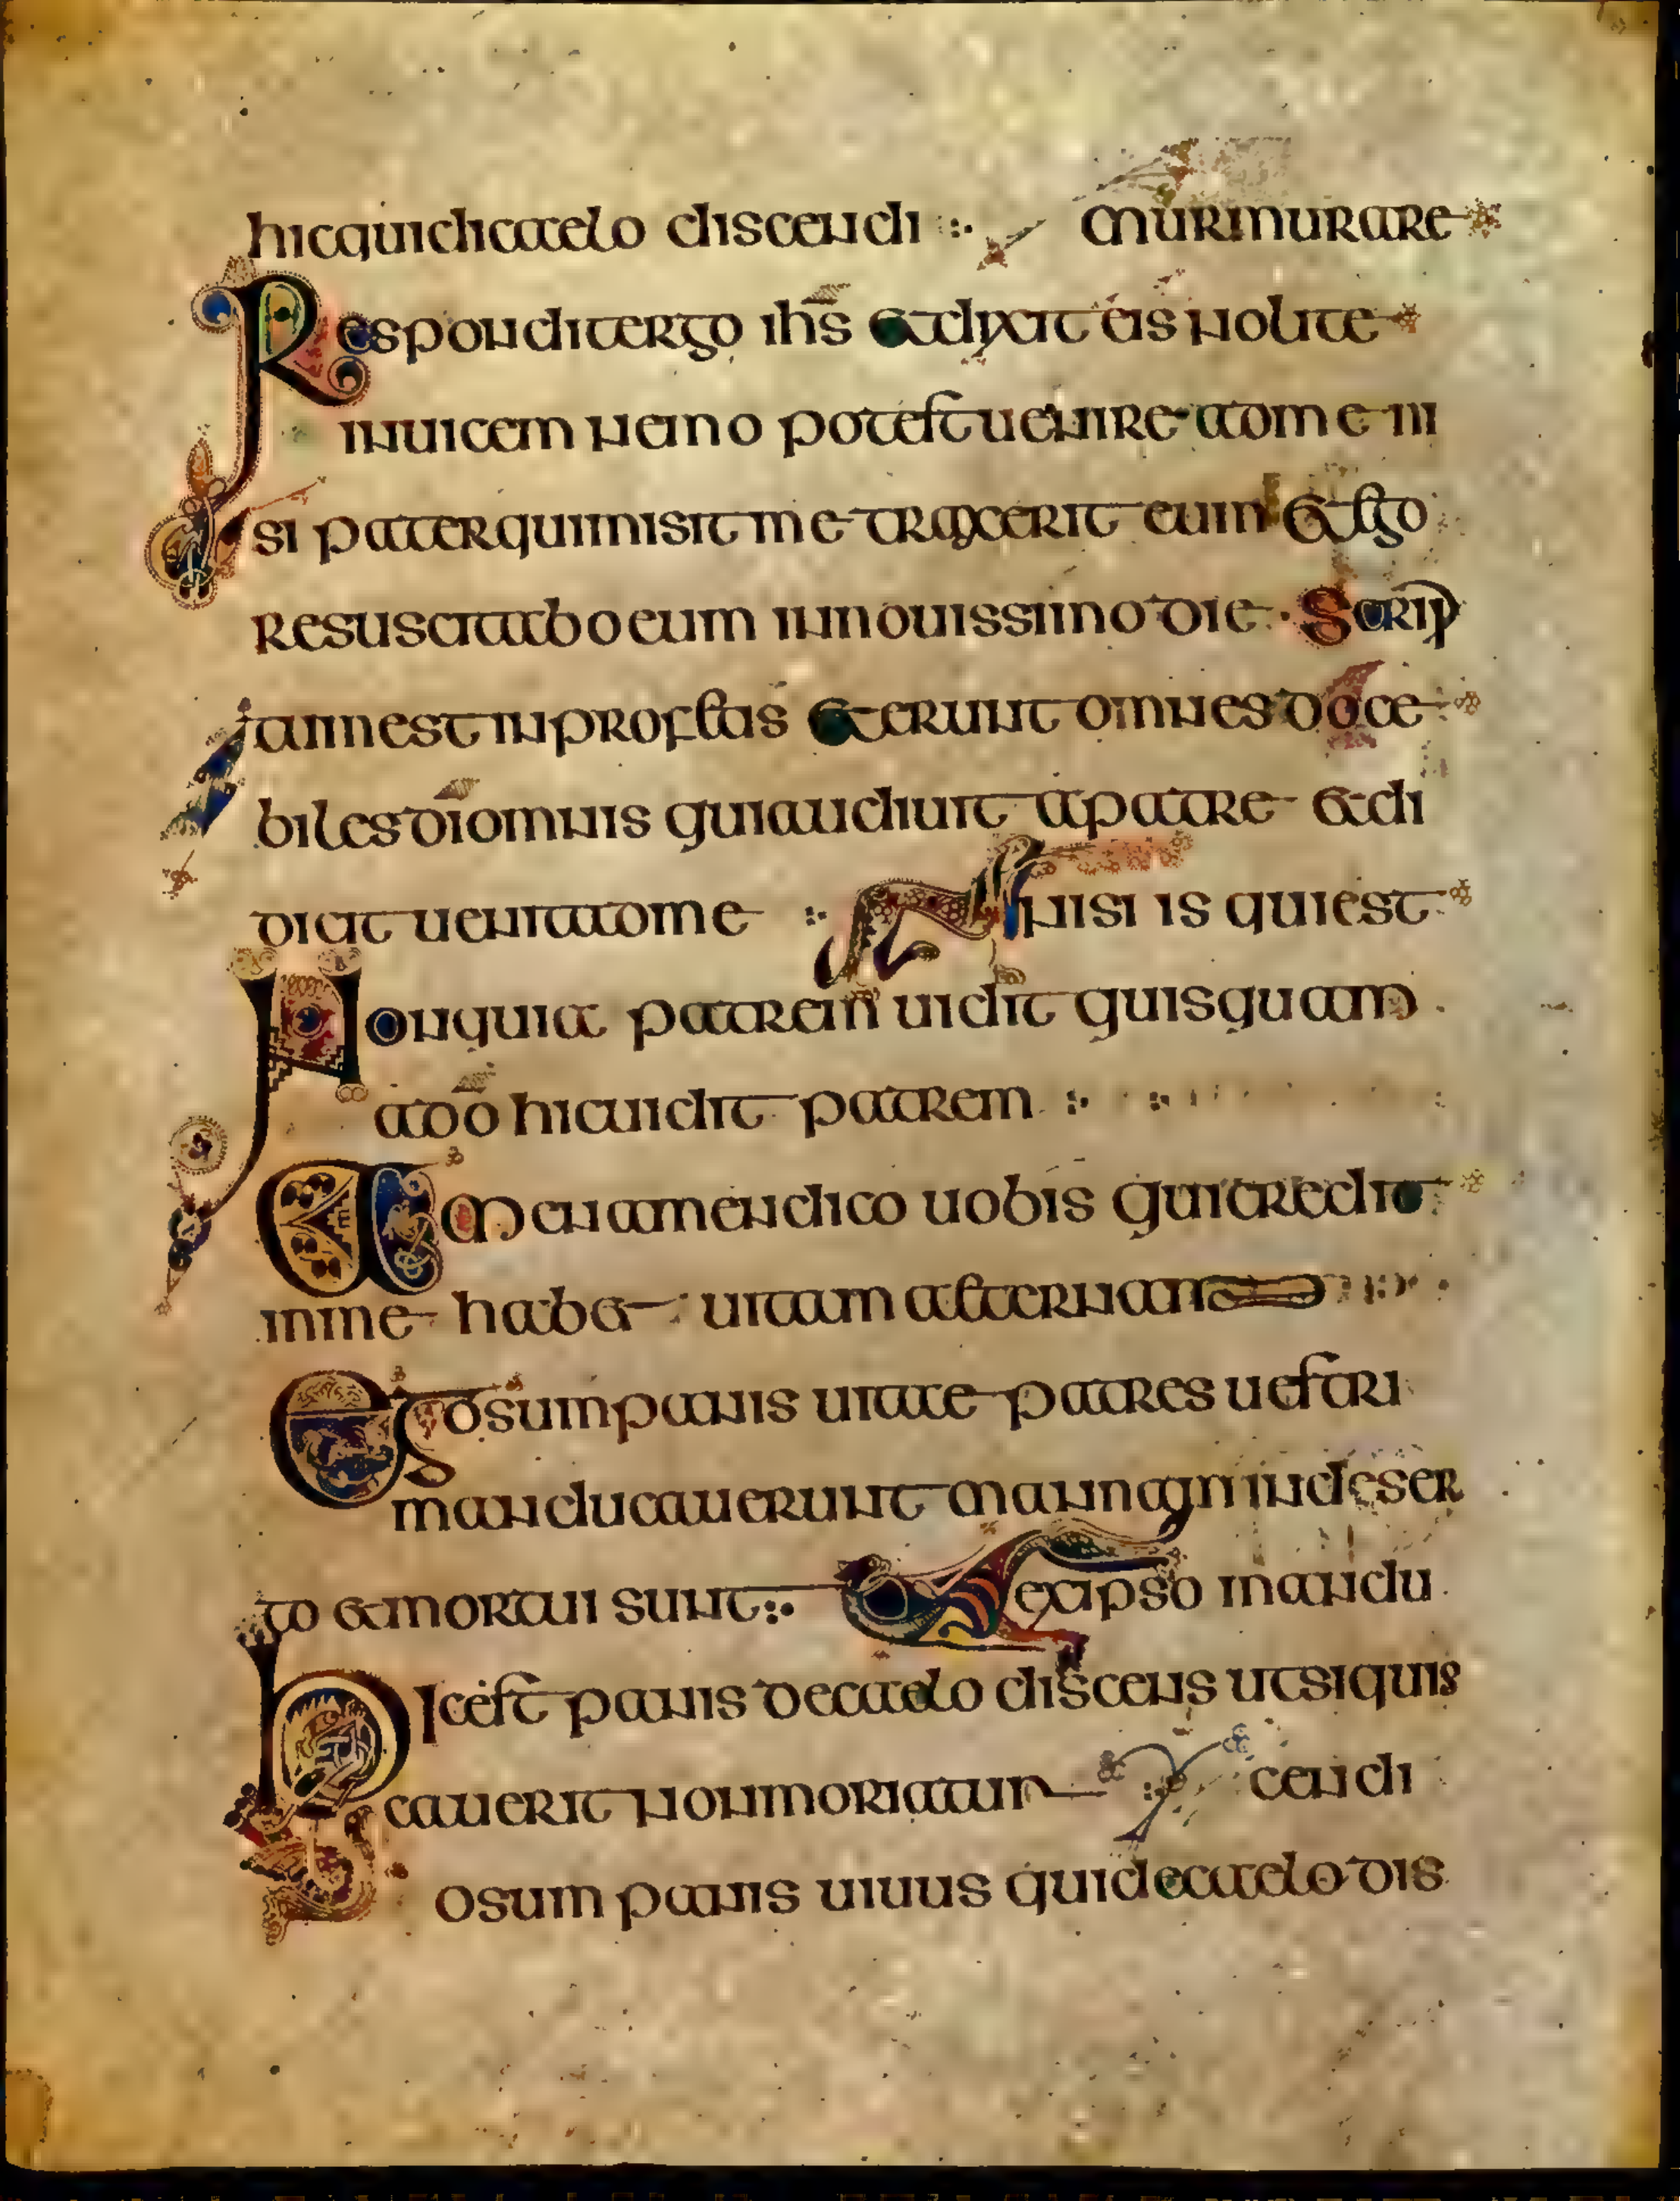 hicquidicaelo discendi murmurare
Responditergo ihs &dixit eis nolite
inuicem nemo potest uenire adme ni
si paterquimisit me traxerit eum &ego
resuscitaboeum innouissimodie Scrip
tumest inprofetas &erunt omnesdoce
bilesdi omnis quiaudiuit apatre &di
dicit uenitadme nisi is quiest
Nonquia patrem uidit quisquam
ado hicuidit patrem
Amenamendico uobis quicredit
inme hab& uitam aeternam
Egosumpanis uitae patres uestri
manducauerunt manna indeser
to &mortui sunt exipso mandu
Hicest panis decaelo discens utsiquis
cauerit nonmoriatur cendi
osum panis uiuus quidecaelodis